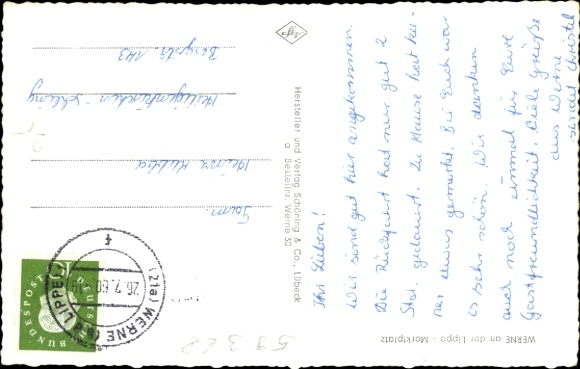 Ihr Lieben!
Wir sind gut hier angekommen.
Die Rückfahrt hat nur gut 2
Std. gedauert. Zu Hause hat kei-
ner etwas gemerkt. Bei Euch war
es sehr schön. Wir danken
auch noch einmal für Eure
Gastfreundlichkeit. Viele Grüße
aus Werne
sendet Christel
WERNE an der Lippe - Marktplatz
Hersteller und Verlag Schöning & Co., Lübeck
Bestellnr. Werne 50
Agfa
Fam.
Heinz
Heiligenkirchen
Bergstr. 143
DEUTSCHE BUNDESPOST
(21a) WERNE (LIPPE)
26.7.60
f
59368